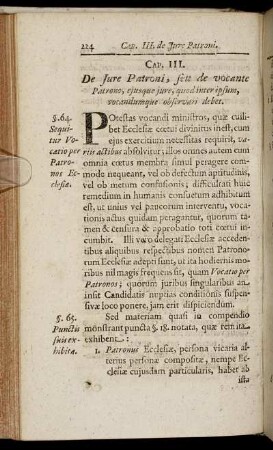 224 Cap. III. de Jure Patroni.
CAP. III.
De Jure Patroni, seu de vocante
Patrono, ejusque jure, quod inter ipsum,
vocandumque observari debet.
§. 64.
Sequi-
tur Vo-
catio per
Patro-
nos Ec-
clesiæ.
POtestas vocandi ministros, quæ cui-
libet Ecclesiæ cœtui divinitus inest, cum
ejus exercitium necessitas requirit, va-
riis actibus absolvitur; illos omnes autem cum
omnia cœtus membra simul peragere commo-
de nequeant, vel ob defectum aptitudinis,
vel ob metum confusionis; difficultati huic
remedium in humanis consuetum adhibitum
est, ut unius vel paucorum interventu, voca-
tionis actus quidam peragantur, quorum ta-
men & censura & approbatio toti cœtui in-
cumbit. Illi vero delegati Ecclesiæ acceden-
tibus aliquibus respectibus nomen Patrono-
rum Ecclesiæ adepti sunt, ut ita hodiernis mo-
ribus nil magis frequens sit, quam Vocatio per
Patronos; quorum juribus singularibus an
insit Candidatis nuptias conditionis suspen-
sivæ loco ponere, jam erit dispiciendum.
§. 65.
Punctis
suis ex-
hibita.
Sed materiam quasi in compendio
monstrant puncta §. 18. notata, quæ rem ita
exhibent:
1. Patronus Ecclesiæ, persona vicaria al-
terius personæ compositæ, nempe Ec-
clesiæ cujusdam particularis, habet ab
ista